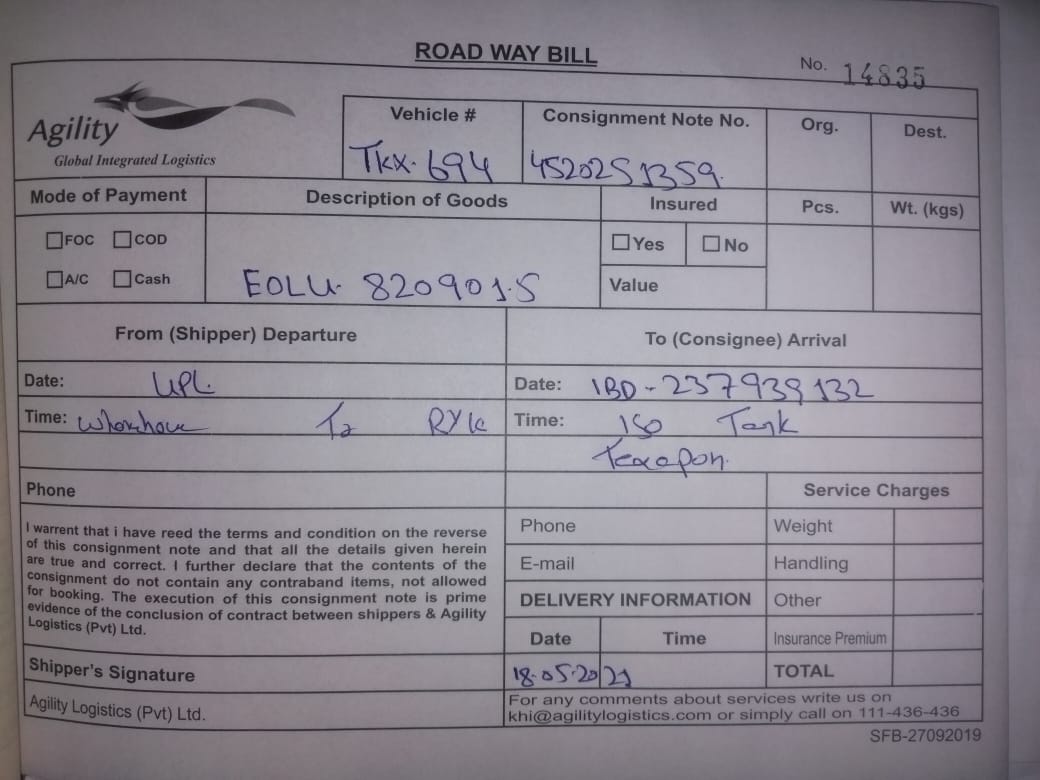 ROAD WAY BILL
No. 14835
Agility
Global Integrated Logistics
Vehicle #
TKX-694
Consignment Note No.
4520251359.
Org.
Dest.
Mode of Payment
FOC
COD
A/C
Cash
Description of Goods
EOLU- 820901-5
Insured
Yes
No
Value
Pcs.
Wt. (kgs)
From (Shipper) Departure
To (Consignee) Arrival
Date: UPL
Date: IBD-237939132
Time: To RYK
Time: ISO Tank
Texapon.
Phone
Service Charges
I warrent that i have reed the terms and condition on the reverse
of this consignment note and that all the details given herein
are true and correct. I further declare that the contents of the
consignment do not contain any contraband items, not allowed
for booking. The execution of this consignment note is prime
evidence of the conclusion of contract between shippers & Agility
Logistics (Pvt) Ltd.
Phone
Weight
E-mail
Handling
DELIVERY INFORMATION
Other
Date
Time
Insurance Premium
Shipper's Signature
18-05-2021
TOTAL
Agility Logistics (Pvt) Ltd.
For any comments about services write us on
khi@agilitylogistics.com or simply call on 111-436-436
SFB-27092019